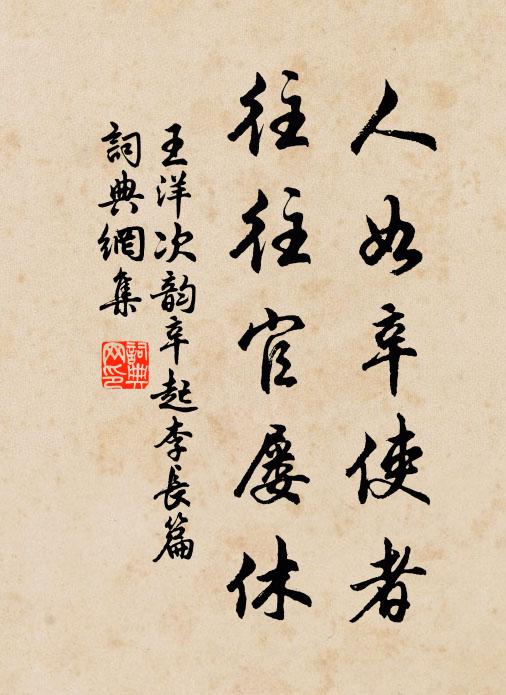 人如辛使者
往往官屡休
王洋次韵辛起李长篇
詞典網集
詞典网印